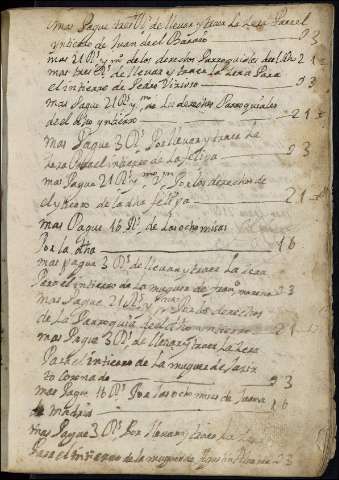 mas Pague tres Rs de llevar y traer La Zera Para el
yntierro de Juan del Barrio 03
mas 21 Rs y mo de los derechos Parroquiales del Dho 21
mas tres Rs de llevar y traer la Zera Para
el intierro de Pedro 03
mas Pague 21 Rs y mo de Los derechos Parroquiales
del dho yntierro 21
mas Pague 3 Rs Por llevar y traer La
Zera Para el intierro de La felipa 03
mas Pague 21 Rs y mo Por los derechos de
el ytierro de la dha felipa 21
mas Pague 16 Rs de Las ocho misas
Por la dha 16
mas pague 3 Rs de llevar y traer La Zera
Para el intierro de La muger de moreno 03
mas Pague 21 Rs y mo Por Los derechos
de La Parroquia del dho yntierro 21
mas Pague 3 Rs de llevar y traer La Zera
Para el intierro de La muger de
to Coronado 03
mas Pague 16 Rs Por Las ocho misas de Juana
de madrid 16
mas Pague 3 Rs Por llevar y traer La
Para el intierro de la muger de Agustin 03